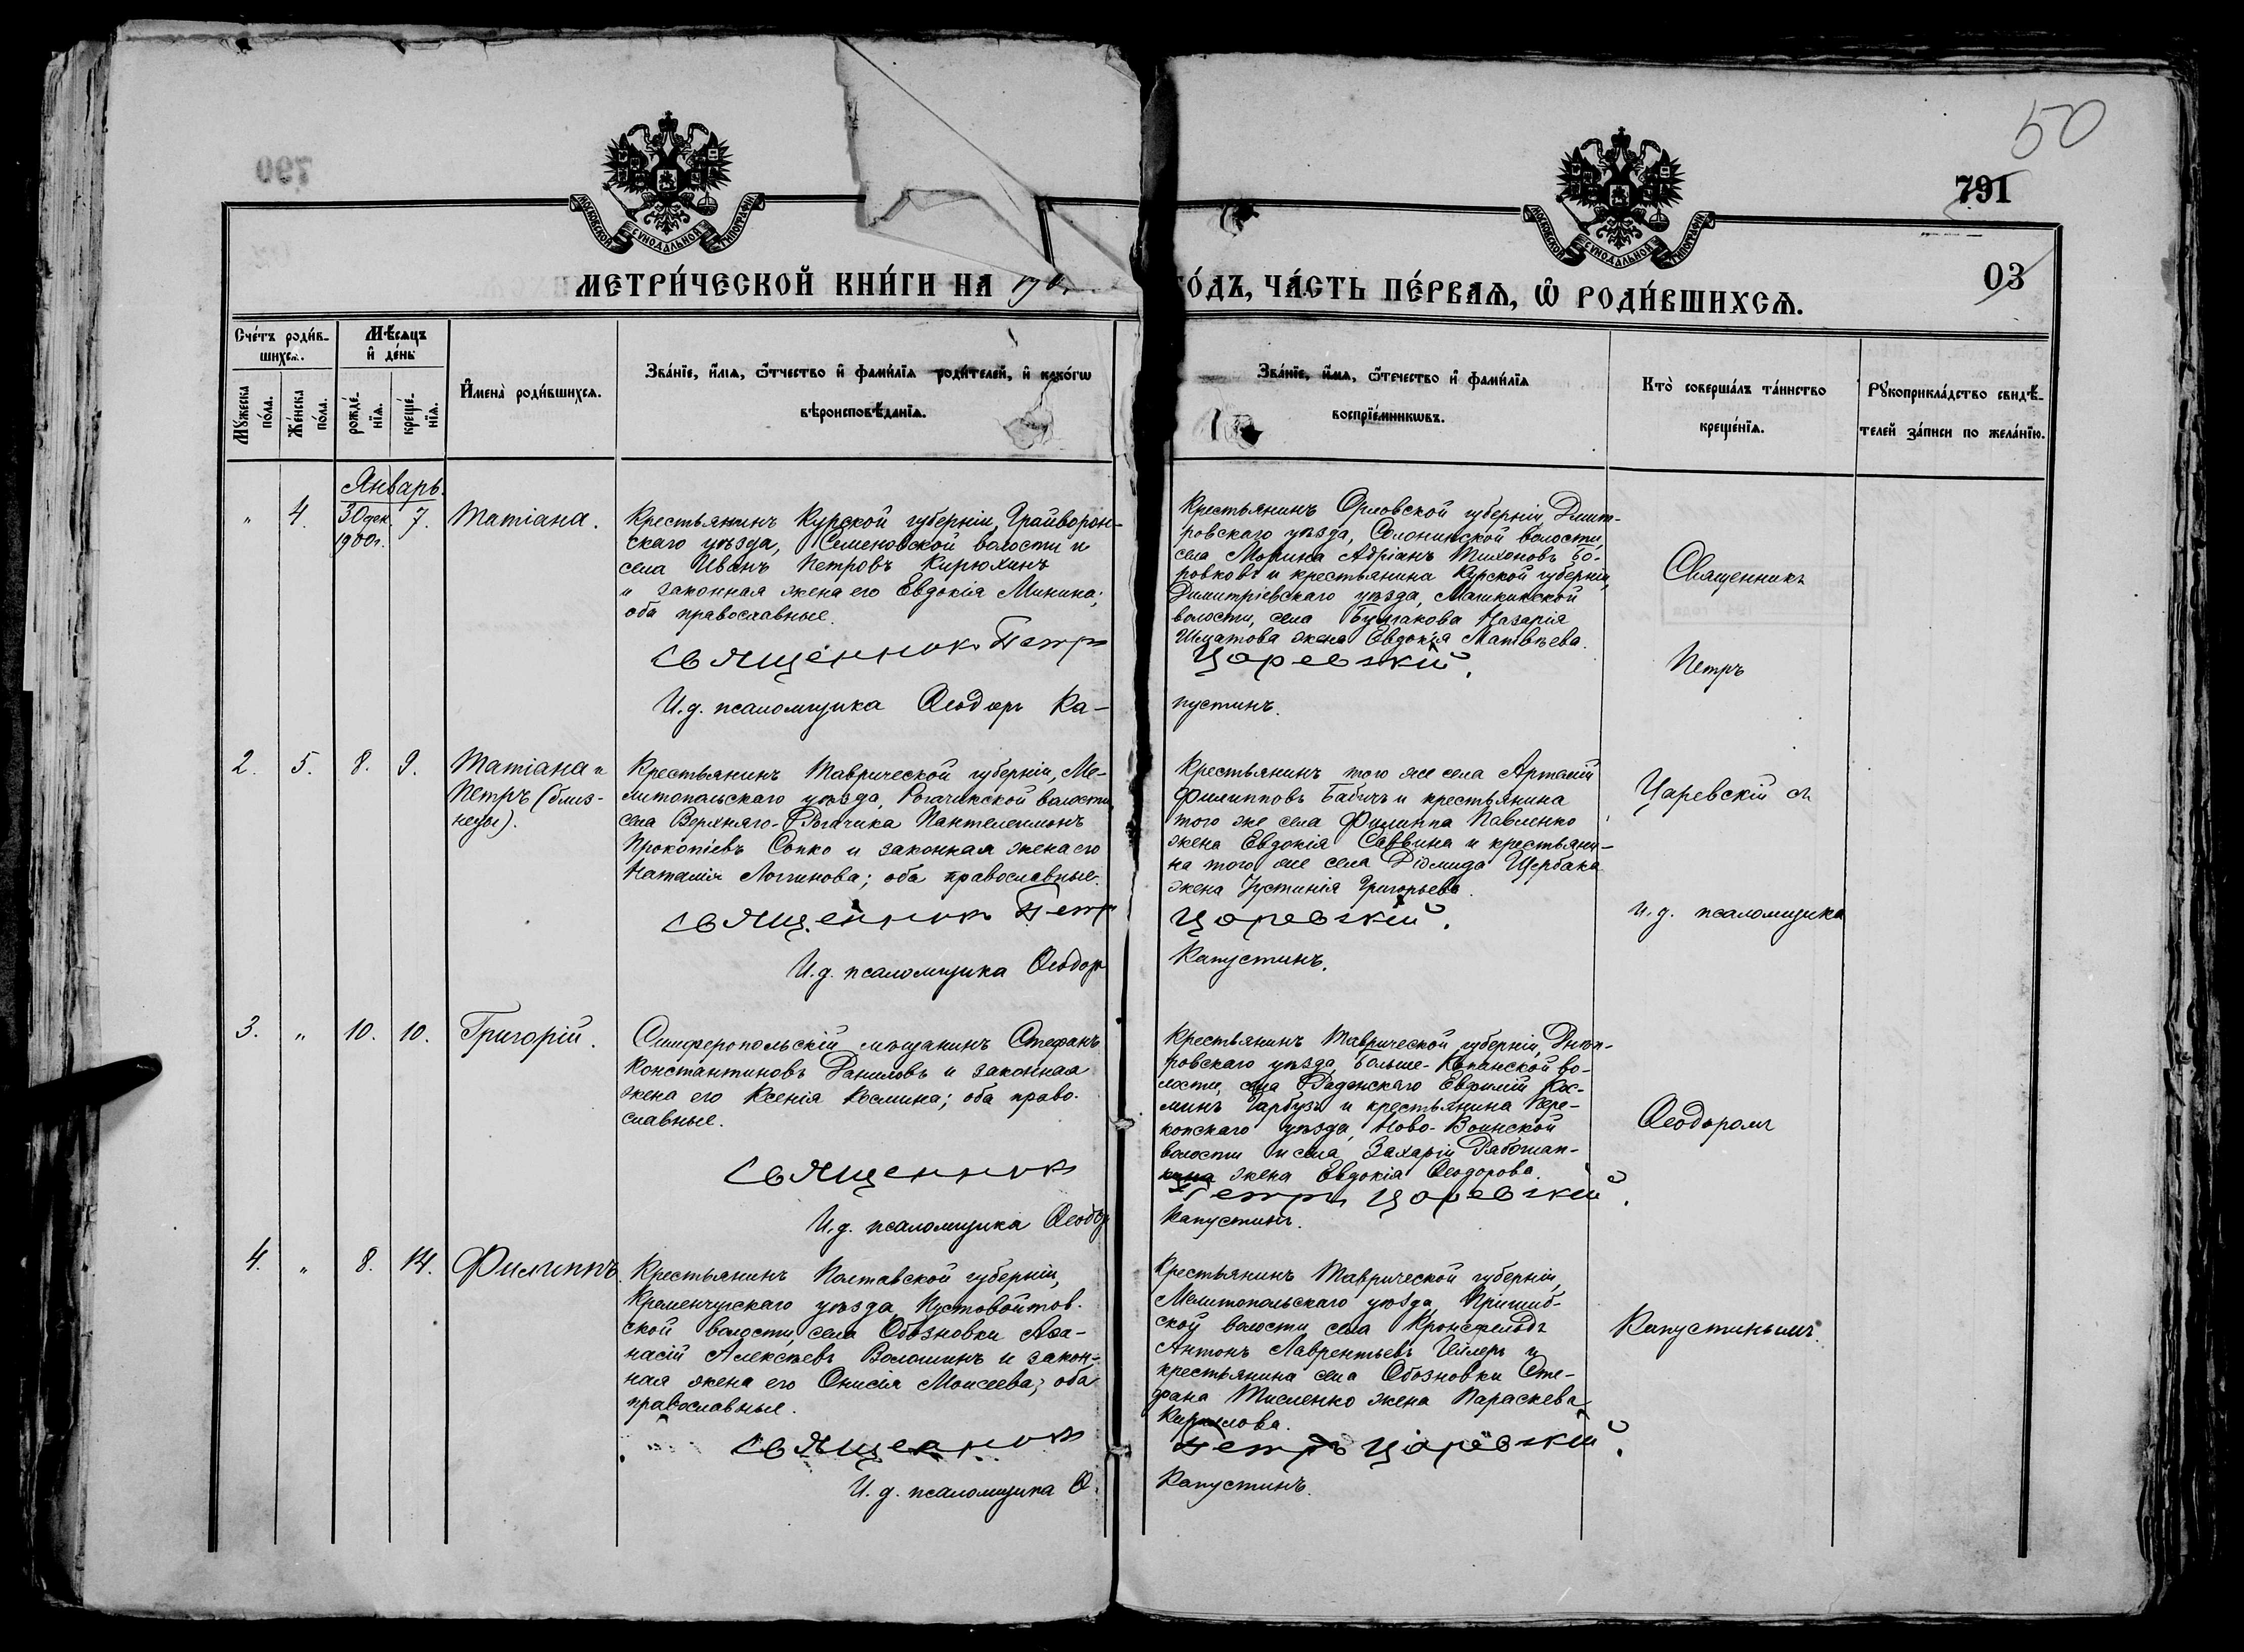 50
790
791
03
МОСКОВСКОЙ СѴНОДАЛЬНОЙ ТИПОГРАФИИ
МОСКОВСКОЙ СѴНОДАЛЬНОЙ ТИПОГРАФИИ
МЕТРИ́ЧЕСКОЙ КНИ́ГИ НА 190
ГО́ДЪ, ЧА́СТЬ ПЕ́РВАѦ, Ѽ РОДИ́ВШИХСѦ.
Сче́тъ роди́в-
шихсѧ.
Мѣ́сѧцъ
и҆ де́нь
Мꙋ́жеска по́ла.
Же́нска по́ла.
рожде́-
нїѧ.
креще́-
нїѧ.
И҆мена̀ роди́вшихсѧ.
Зва́нїе, и҆́мѧ, ѻ҆́тчество и҆ фами́лїѧ роди́телей, и҆ како́гѡ
вѣроисповѣ́данїѧ.
Зва́нїе, и҆́мѧ, ѻ҆́течество и҆ фами́лїѧ
воспрїе́мникѡвъ.
Кто̀ соверша́лъ та́инство
креще́нїѧ.
Рꙋкоприкла́дство свидѣ́-
телей за́писи по жела́нїю.
Январь.
" 4. 30 дек. 1900г. 7. Татіана.
Крестьянинъ Курской губерніи, Грайворон-
скаго уѣзда, Семеновской волости и
села Иванъ Петровъ Кирюхинъ
и законная жена его Евдокія Минина;
оба православные.
Священникъ Петръ
И.д. псаломщика Ѳеодоръ Ка-
Крестьянинъ Орловской губерніи, Дмит-
ровскаго уѣзда, Солонинской волости,
села Адріанъ Тихоновъ Бо-
ровковъ и крестьянина Курской губерніи,
Димитріевскаго уѣзда, Машкинской
волости, села Назарія
жена Евдокія Матвѣева.
Царевскій.
пустинъ.
Священникъ
Петръ
2. 5. 8. 9. Татіана и
Петръ (близ-
нецы).
Крестьянинъ Таврической губерніи, Ме-
литопольскаго уѣзда, Рогачикской волости,
села Верхняго-Рогачика Пантелеимонъ
Прокопіевъ Сопко и законная жена его
Наталія Логгинова; оба православные.
Священникъ Петръ
И.д. псаломщика Ѳеодоръ
Крестьянинъ того же села Артемій
Филипповъ Бабичъ и крестьянина
того же села Филиппа Павленко
жена Евдокія Саввина и крестьяни-
на того же села Діомида Щербака
жена Іустинія Григорьева.
Царевскій.
Капустинъ.
Царевскій съ
и.д. псаломщика
3. " 10. 10. Григорій.
Симферопольскій мѣщанинъ Стефанъ
Константиновъ Даниловъ и законная
жена его Ксенія Космина; оба право-
славные.
Священникъ
И.д. псаломщика Ѳеодор
Крестьянинъ Таврической губерніи, Днѣп-
ровскаго уѣзда, Больше-Копанской во-
лости, села Раденскаго Евфимій Кос-
минъ Гарбузъ и крестьянина Пере-
копскаго уѣзда, Ново-
волости и села Захарія
жена Евдокія Ѳеодорова.
Петръ Царевскій.
Капустинъ.
Ѳеодоромъ
4. " 8. 14. Филиппъ.
Крестьянинъ Полтавской губерніи,
Кременчугскаго уѣзда, Пустовойтов-
ской волости, села Обозновки Аѳа-
насій Алексѣевъ Волошинъ и закон-
ная жена его Онисія Моисеева; оба
православные.
Священникъ
И. д. псаломщика Ѳ.
Крестьянинъ Таврической губерніи,
Мелитопольскаго уѣзда, Пришиб-
ской волости села Кронсфельдъ
Антонъ Лаврентьевъ и
крестьянина села Обозновки Сте-
фана Тисленко жена Параскева
Кириллова.
Петръ Царевскій.
Капустинъ.
Капустинымъ.